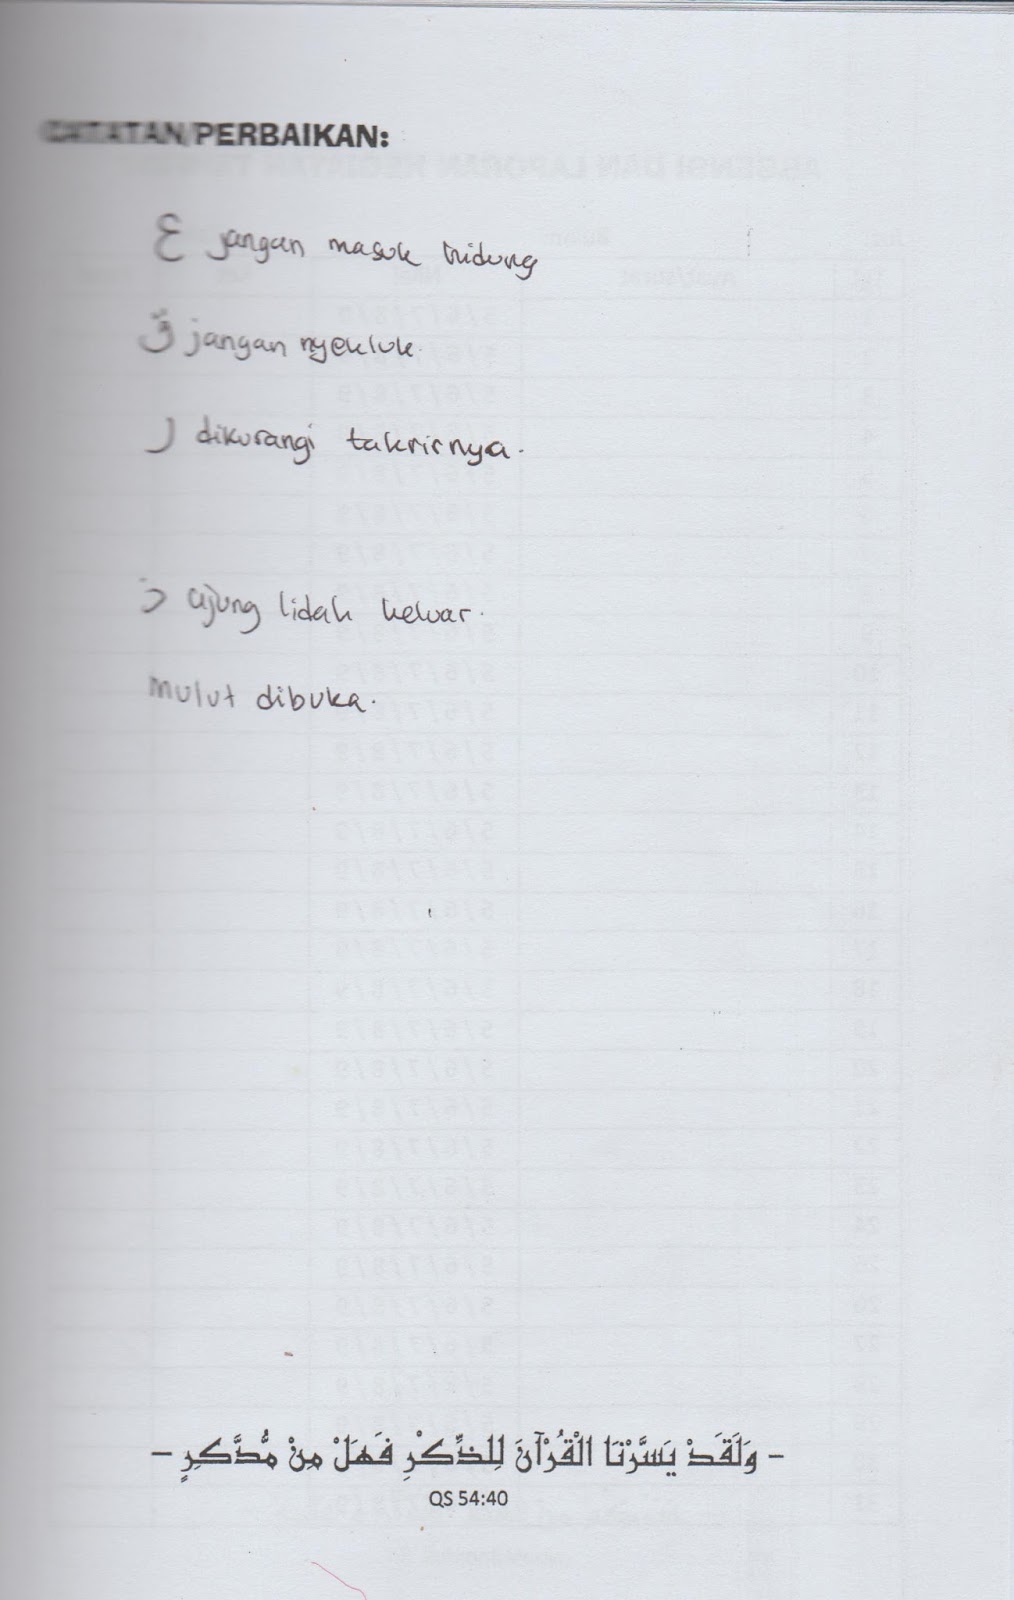 CATATAN PERBAIKAN:
ع jangan masuk hidung
ق jangan nyekluk.
ر dikurangi takrirnya.
ذ ujung lidah keluar.
mulut dibuka.
– وَلَقَدْ يَسَّرْنَا الْقُرْآنَ لِلذِّكْرِ فَهَلْ مِنْ مُّدَّكِرٍ –
QS 54:40